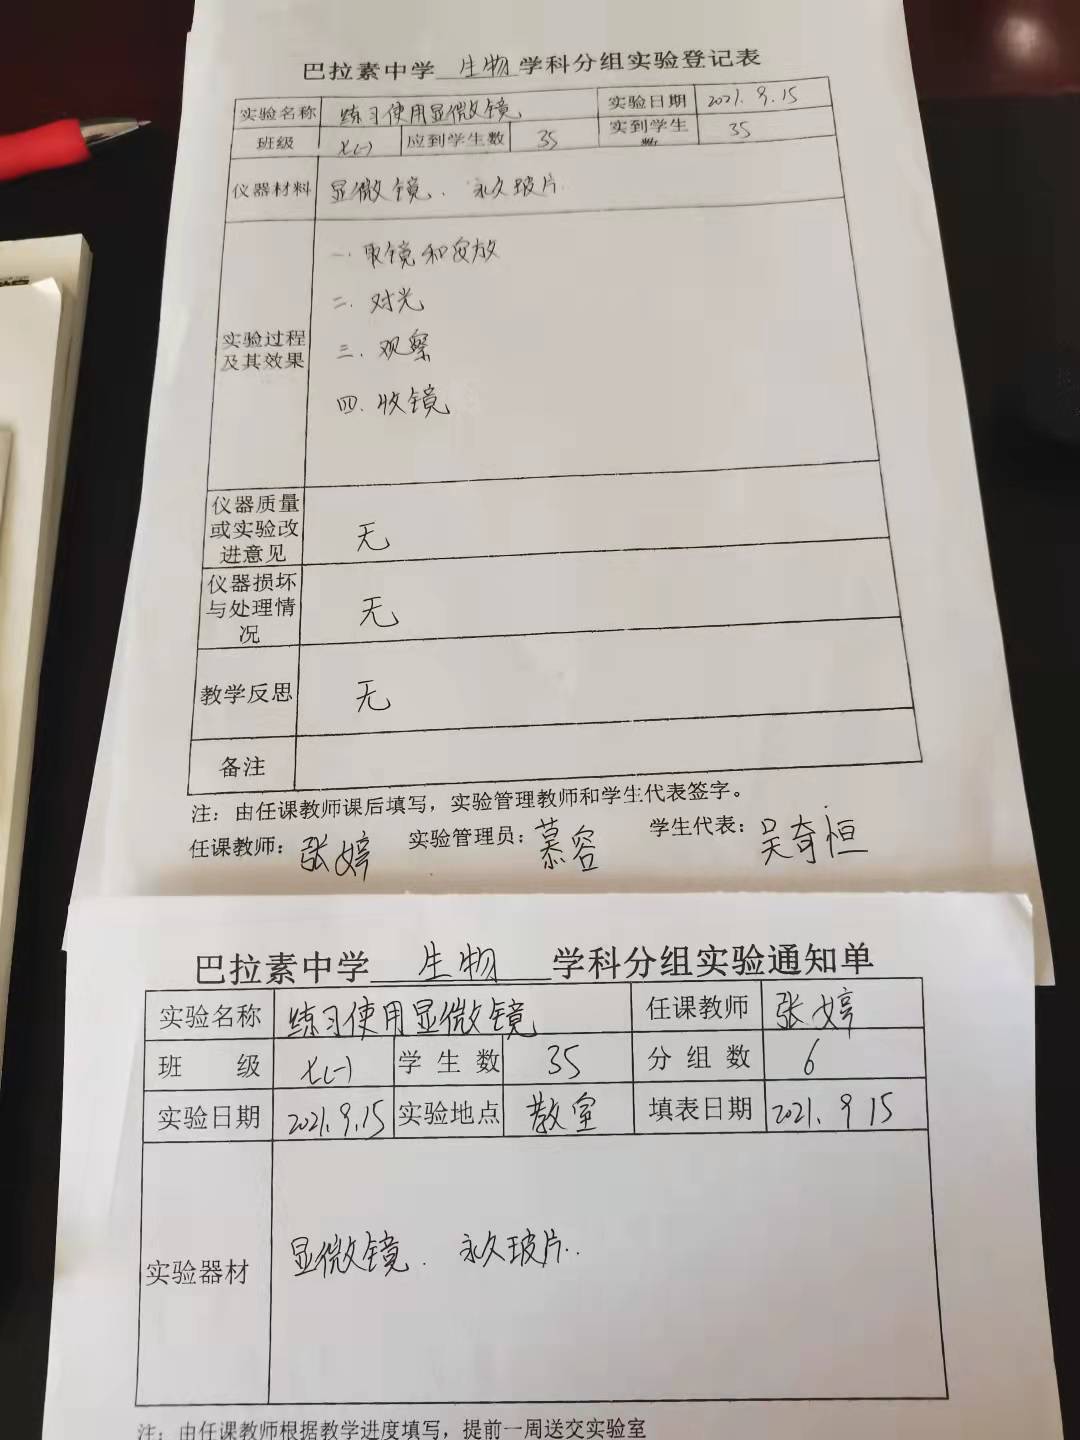 巴拉素中学 生物 学科分组实验登记表
实验名称 练习使用显微镜 实验日期 2021.9.15
班级 七(一) 应到学生数 35 实到学生数 35
仪器材料 显微镜、永久玻片
实验过程及其效果
一.取镜和安放
二.对光
三.观察
四.收镜
仪器质量或实验改进意见 无
仪器损坏与处理情况 无
教学反思 无
备注
注：由任课教师课后填写，实验管理教师和学生代表签字。
任课教师：张婷 实验管理员：慕容 学生代表：吴奇恒
巴拉素中学 生物 学科分组实验通知单
实验名称 练习使用显微镜 任课教师 张婷
班级 七(一) 学生数 35 分组数 6
实验日期 2021.9.15 实验地点 教室 填表日期 2021.9 15
实验器材 显微镜、永久玻片..
注：由任课教师根据教学进度填写，提前一周送交实验室